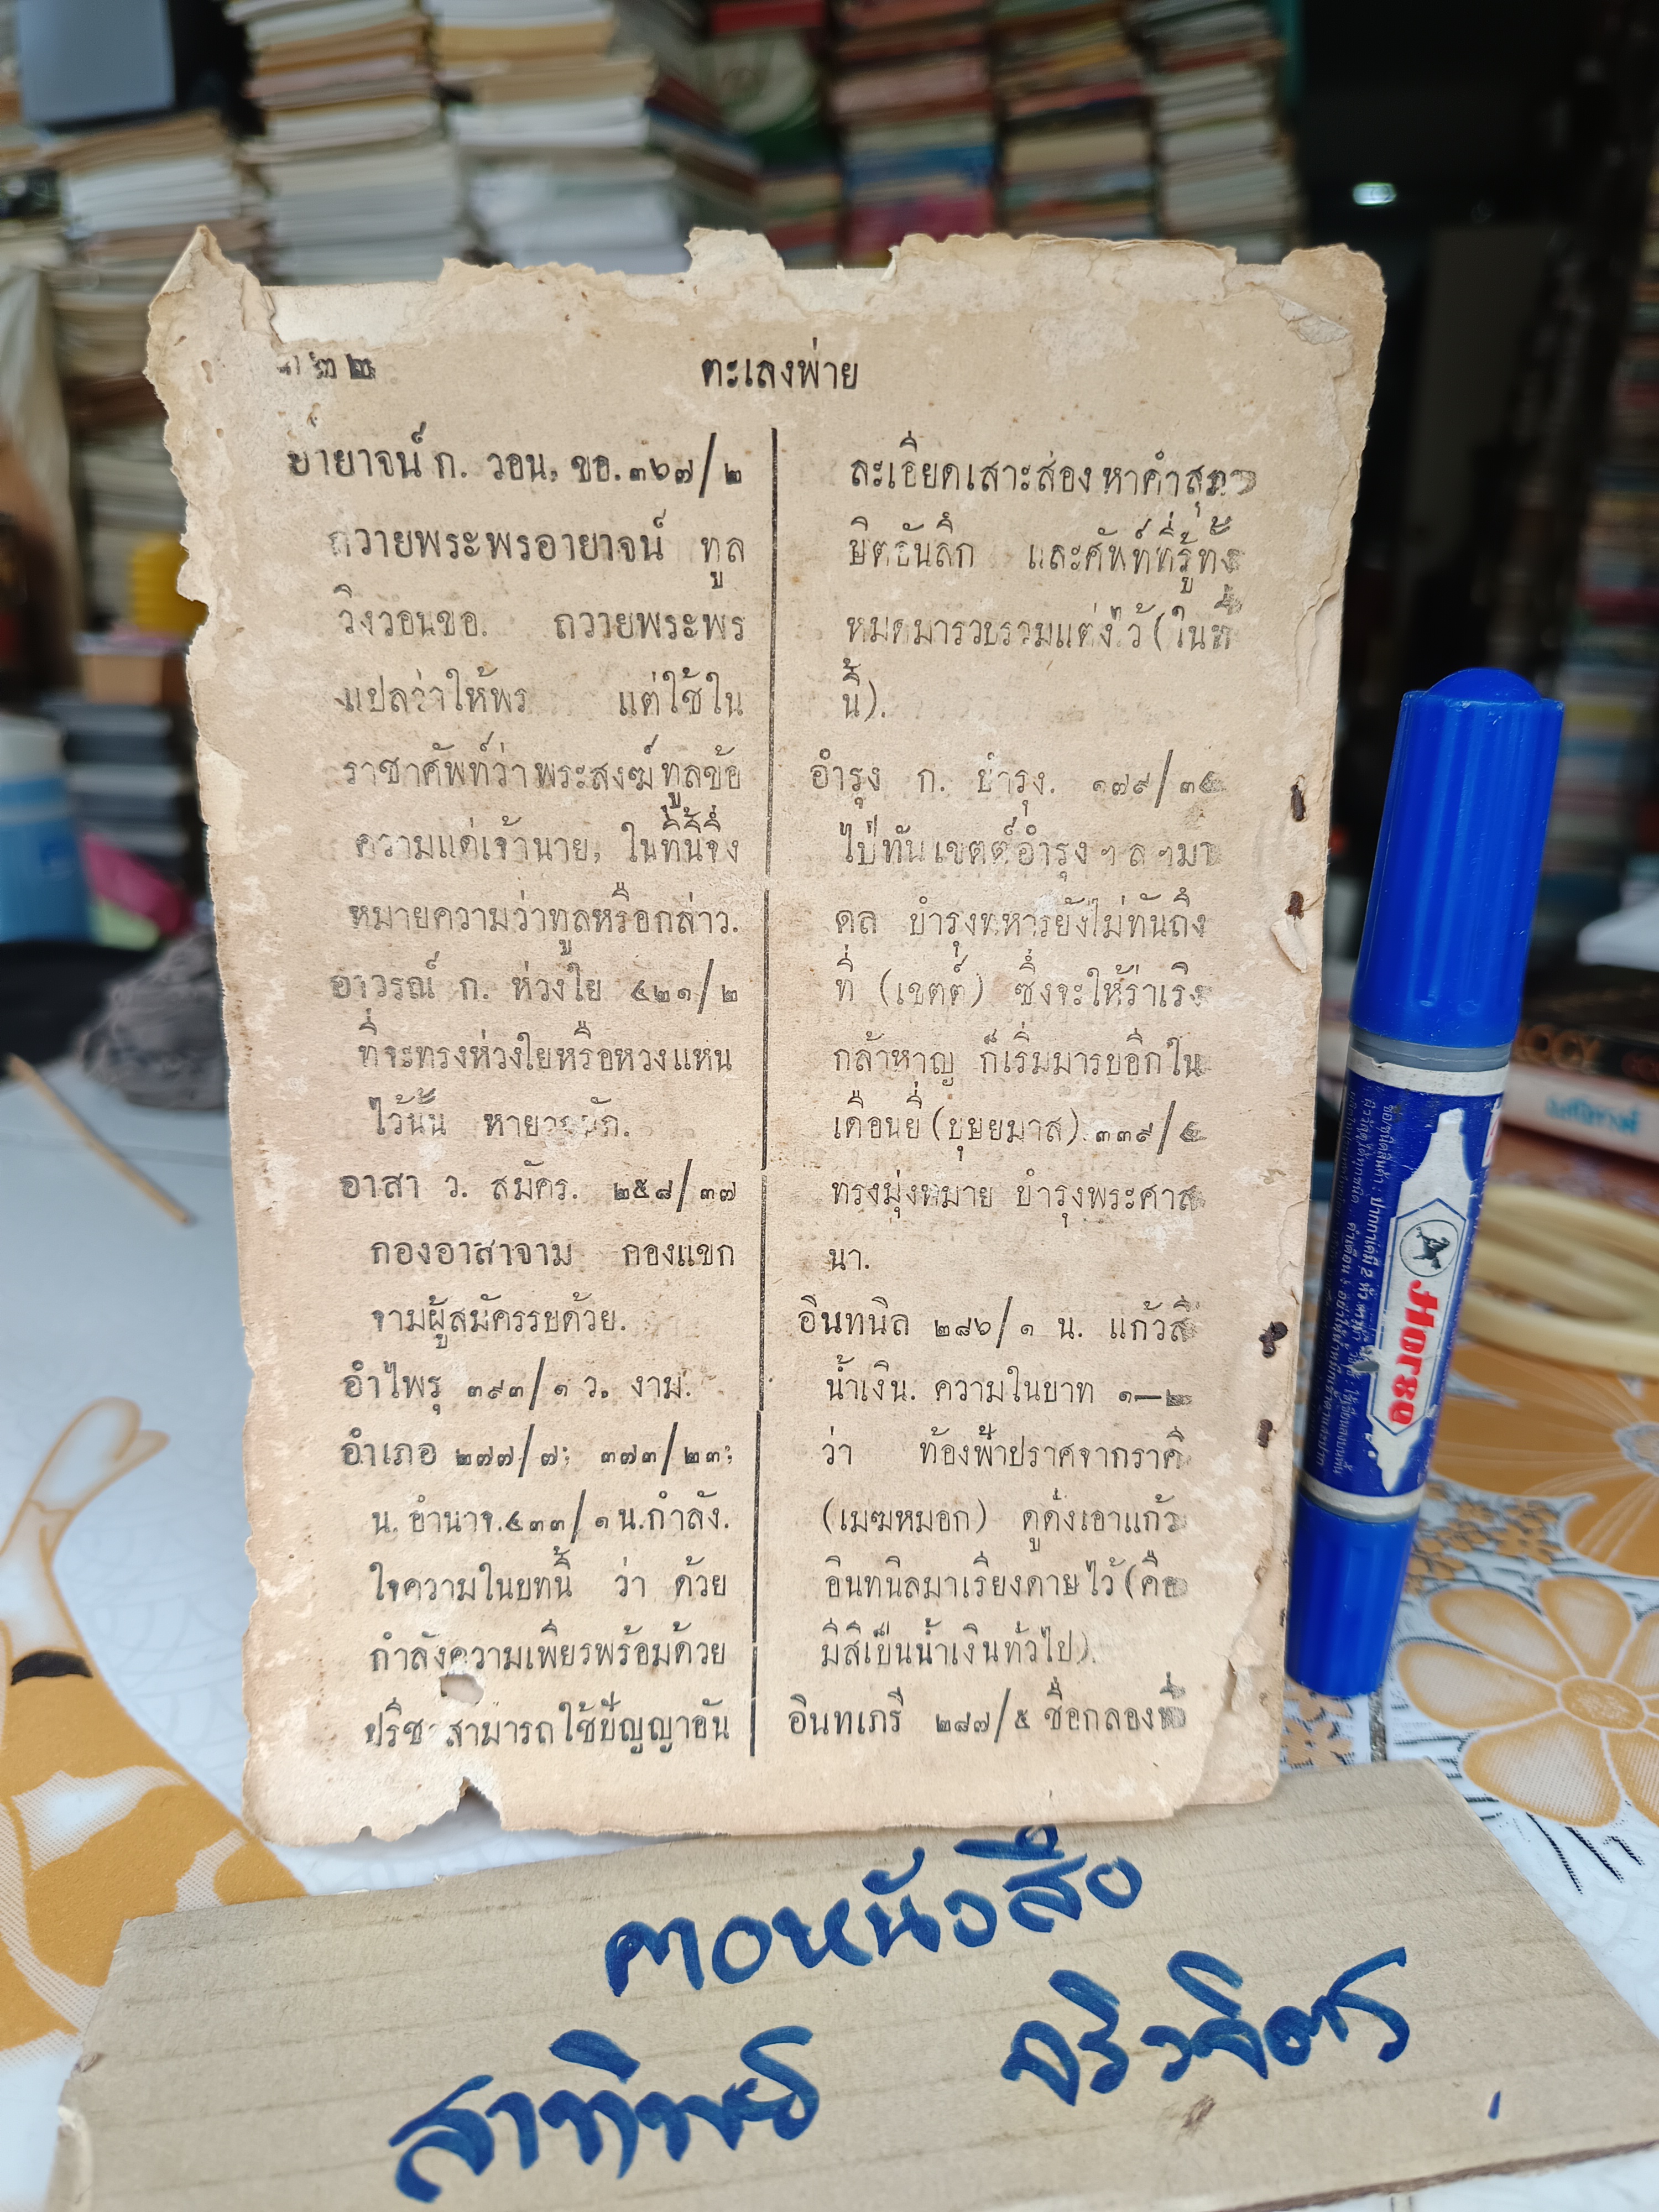 ๓๒
ตะเลงพ่าย
อายาจน์ ก. วอน, ขอ. ๓๖๗/๒
ถวายพระพรอายาจน์ ทูล
วิงวอนขอ. ถวายพระพร
แปลว่าให้พร แต่ใช้ใน
ราชาศัพท์ว่าพระสงฆ์ทูลข้อ
ความแด่เจ้านาย, ในที่นี้จึ่ง
หมายความว่าทูลหรือกล่าว.
อาวรณ์ ก. ห่วงใย ๔๒๑/๒
ที่จะทรงห่วงใยหรือหวงแหน
ไว้นั้น
อาสา ว. สมัคร. ๒๕๘/๓๗
กองอาสาจาม กองแขก
จามผู้สมัครรบด้วย.
อำไพรุ ๓๙๓/๑ ว. งาม.
อำเภอ ๒๗๗/๗; ๓๗๓/๒๓;
น. อำนาจ. ๔๓๓/๑ น. กำลัง.
ใจความในบทนี้ ว่า ด้วย
กำลังความเพียรพร้อมด้วย
ปรีชาสามารถใช้ปัญญาอัน
ละเอียดเสาะส่องหาคำสุภา
ษิตอันลึก และศัพท์ที่รู้ทั้ง
หมดมารวบรวมแต่งไว้ (ในที่
นี้).
อำรุง ก. บำรุง. ๑๗๙/๓๕
ไป่ทันเขตต์อำรุง ฯ ล ฯ มา
ดล บำรุงทหารยังไม่ทันถึง
ที่ (เขตต์) ซึ่งจะให้ร่าเริง
กล้าหาญ ก็เริ่มมารบอีกใน
เดือนยี่ (บุษยมาส). ๓๓๙/๔
ทรงมุ่งหมาย บำรุงพระศาส
นา.
อินทนิล ๒๘๖/๑ น. แก้วสี
น้ำเงิน. ความในบาท ๑—๒
ว่า ท้องฟ้าปราศจากราคี
(เมฆหมอก) ดูดั่งเอาแก้ว
อินทนิลมาเรียงดาษไว้ (คือ
มีสีเป็นน้ำเงินทั่วไป).
อินทเภรี ๒๘๗/๕ ชื่อกลองที่
Horse
คอหนังสือ
สาทิพย์ ศรีวจิตร